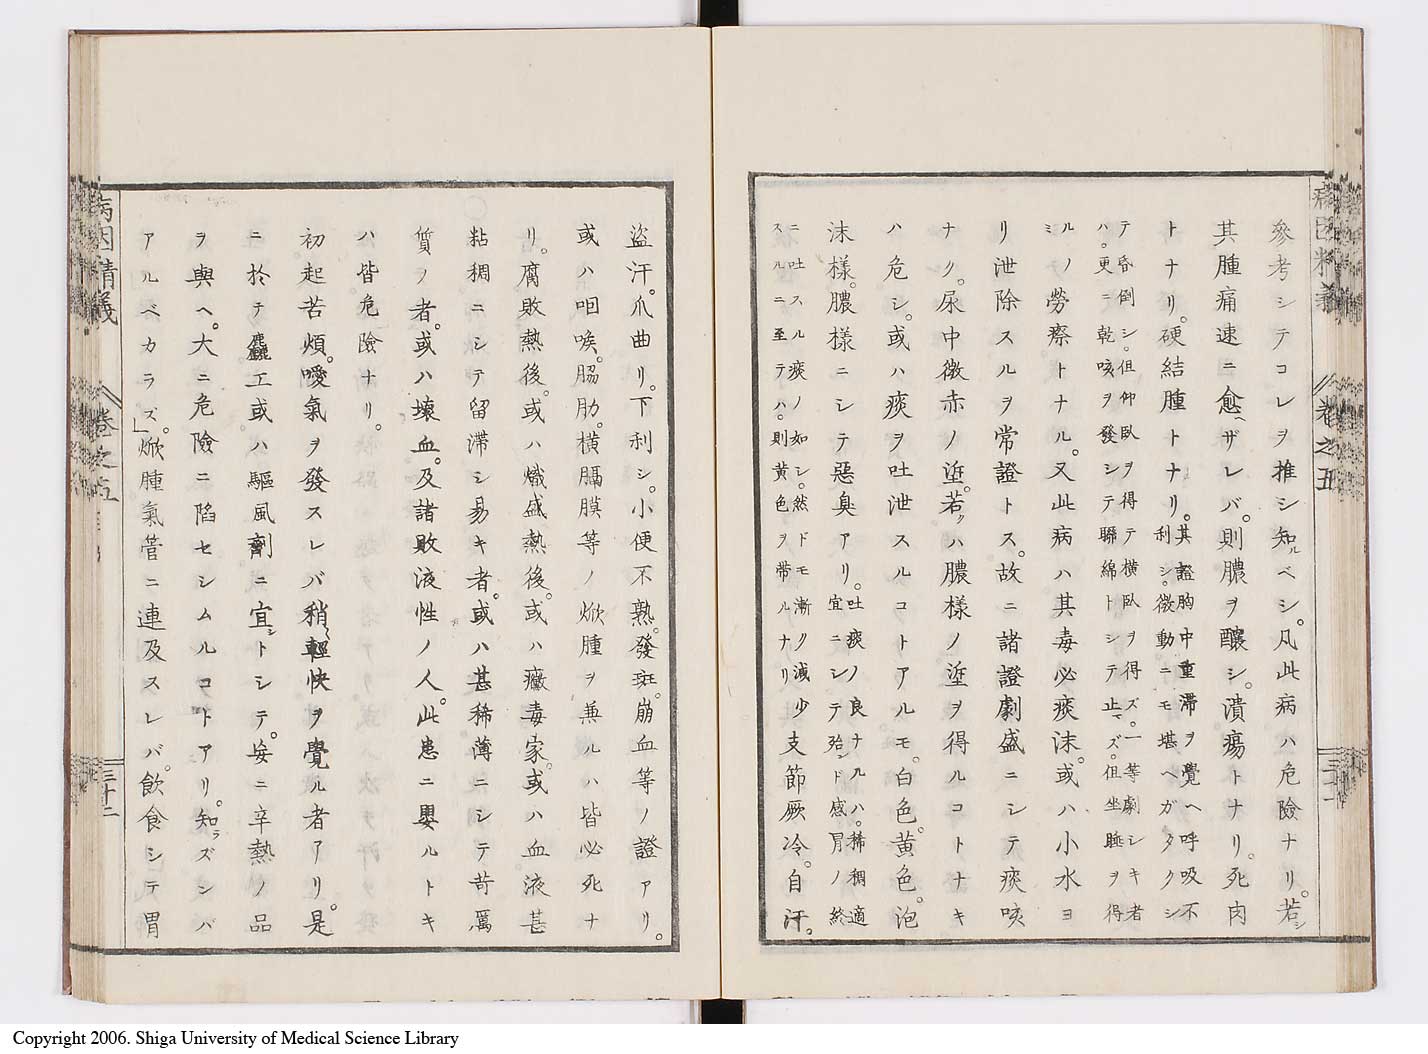 病因精義 巻之五
參考シテコレヲ推シ知ルベシ。凡此病ハ危險ナリ。若シ
其腫痛速ニ愈ヘザレバ。則膿ヲ釀シ。潰瘍トナリ。死肉
トナリ。硬結腫トナリ。其證胸中重滞ヲ覺ヘ呼吸不
利シ。微動ニモ堪ヘガタクシ
テ昏倒シ。但仰臥ヲ得テ横臥ヲ得ズ。一等劇シキ者
ハ。更ニ乾咳ヲ發シテ聯綿トシテ止マズ。但坐睡ヲ得
ルノミ勞瘵トナル。又此病ハ其毒必痰沫。或ハ小水ヨ
リ泄除スルヲ常證トス。故ニ諸證劇盛ニシテ痰咳
ナク。尿中微赤ノ垽。若クハ膿樣ノ垽ヲ得ルコトナキ
ハ危シ。或ハ痰ヲ吐泄スルコトアルモ。白色。黄色。泡
沫樣。膿樣ニシテ惡臭アリ。吐痰ノ良ナルハ。稀稠適
宜ニシテ殆ンド感冒ノ終
ニ吐スル痰ノ如シ。然ドモ漸ク減少
スルニ至テハ。則黄色ヲ帯ルナリ
支節厥冷。自汗。
盜汗。爪曲リ。下利シ。小便不熟。發斑。崩血等ノ證アリ。
或ハ咽喉。脇肋。横膈膜等ノ焮腫ヲ兼ルハ皆必死ナ
リ。腐敗熱後。或ハ熾盛熱後。或ハ黴毒家。或ハ血液甚
粘稠ニシテ留滞シ易キ者。或ハ甚稀薄ニシテ苛厲
質ノ者。或ハ壞血。及諸敗液性ノ人。此患ニ嬰ルトキ
ハ皆危險ナリ。
初起苦煩。噯氣ヲ發スレバ稍〻輕快ヲ覺ル者アリ。是
ニ於テ麤工或ハ驅風劑ニ宜シトシテ。妄ニ辛熱ノ品
ヲ與ヘ。大ニ危險ニ陷セシムルコトアリ。知ラズンバ
アルベカラズ。」焮腫氣管ニ連及スレバ。飲食シテ胃
病因精義 巻之五 三十二
Copyright 2006. Shiga University of Medical Science Library